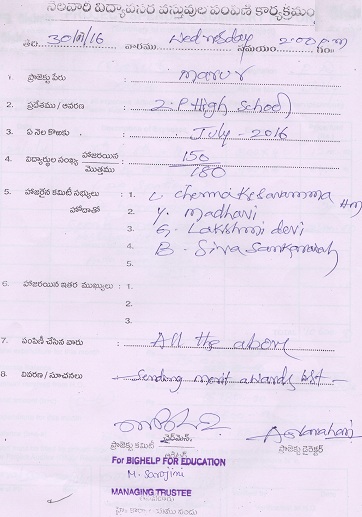 నెలవారి విద్యావసర వస్తువుల పంపిణీ కార్యక్రమం
తేది 30/ /16 వారము Wednesday సమయం 2:00 pm గం॥
1. ప్రాజెక్టు పేరు : marur
2. ప్రదేశము / ఆవరణ : Z.P High School
3. ఏ నెల కొరకు : July - 2016
4. విద్యార్థుల సంఖ్య హాజరయిన / మొత్తము : 150 / 180
5. హాజరైన కమిటీ సభ్యులు : 1. C. Chenna Kesavamma Hm
హోదాతో 2. Y. Madhavi
3. G. Lakshmi devi
4. B. Siva Sankaraiah
5.
6. హాజరయిన ఇతర ముఖ్యులు : 1.
2.
3.
7. పంపిణీ చేసిన వారు : All the above
8. వివరణ / సూచనలు : Sending merit awards list
ప్రాజెక్టు కమిటీ ఛైర్మెన్
ప్రాజెక్టు డైరెక్టర్
For BIGHELP FOR EDUCATION
M. Sarojini
MANAGING TRUSTEE